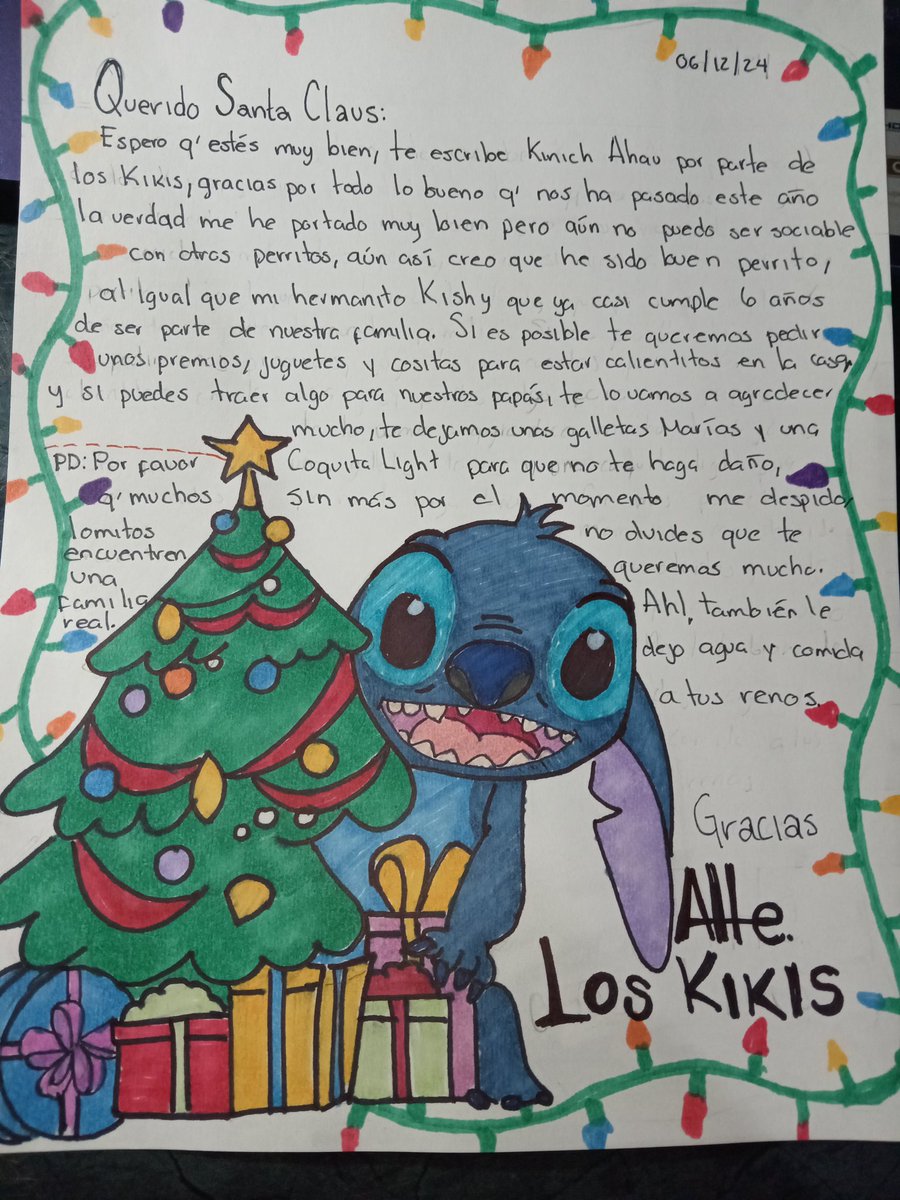 06/12/24
Querido Santa Claus:
Espero q' estés muy bien, te escribe Kinich Ahau por parte de
los Kikis, gracias por todo lo bueno q' nos ha pasado este año
la verdad me he portado muy bien pero aún no puedo ser sociable
con otros perritos, aún así creo que he sido buen perrito,
al igual que mi hermanito Kishy que ya casi cumple 6 años
de ser parte de nuestra familia. Si es posible te queremos pedir
unos premios, juguetes y cositas para estar calientitos en la casa,
y si puedes traer algo para nuestros papás, te lo vamos a agradecer
mucho, te dejamos unas galletas Marías y una
Coquita Light para que no te haga daño,
sin más por el momento me despido,
no olvides que te
queremos mucho.
Ah!, también le
dejo agua y comida
a tus renos.
PD: Por favor
q' muchos
lomitos
encuentren
una
familia
real.
Gracias
Atte.
Los KIKIS